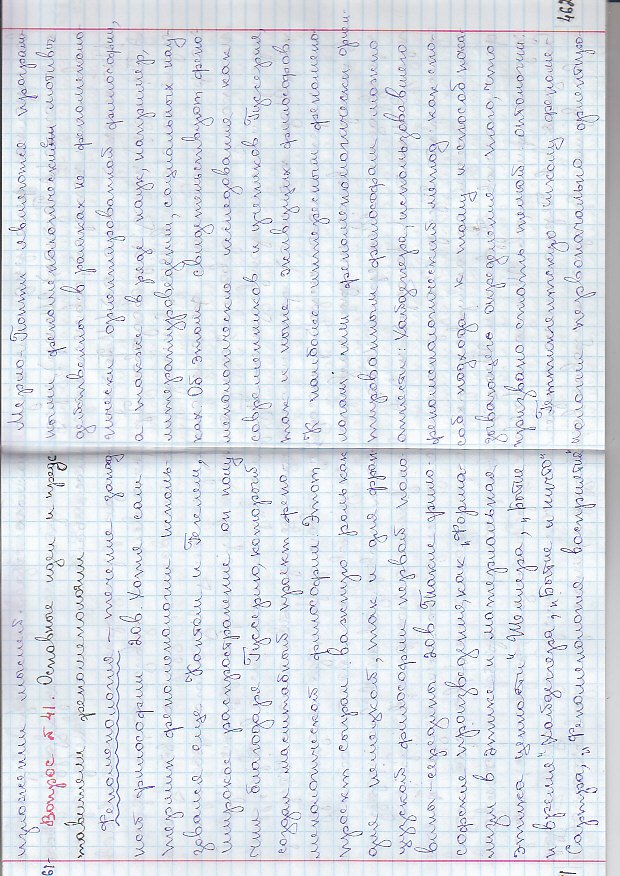 пряжении мыслей.
61- Вопрос № 41. Основные идеи и предс
тавители феноменологии
Феноменология – течение запад
ной философии 20в. Хотя сам
термин феноменологии исполь
зовался еще Кантом и Гегелем,
широкое распространение он полу
чил благодаря Гуссерлю, который
создал масштабный проект фено-
менологической философии. Этот
проект сыграл важную роль как
для немецкой, так и для фран
цузской философии первой поло
вины-середины 20в. Такие фило-
софские произведения, как „Форма-
лизм в этике и материальная
этика ценности" Шелера, „Бытие
и время" Хайдегера, „Бытие и ничто"
Сартра, „Феноменология восприятия
Мерло-Понти являются програм-
ными феноменологическими мотивы
действенны в рамках не феноменоло-
гически ориентированной философии,
а также в ряде наук, например,
литературоведении, социальных нау-
ках Об этом свидетельствуют фено-
менологические исследования как
современников и учеников Гуссерля,
так и ныне живущих философов.
К наиболее интересным феномено-
логам или феноменологически ориен-
тированным философам можно
отнести: Хайдегера, использовавшего
феноменологический метод как спо-
соб подхода к тому и способ пока-
зывающего определение того, что
призвано стать темой онтологии.
Геттингентскую школу феноме-
нологии первоначально ориентиро
462